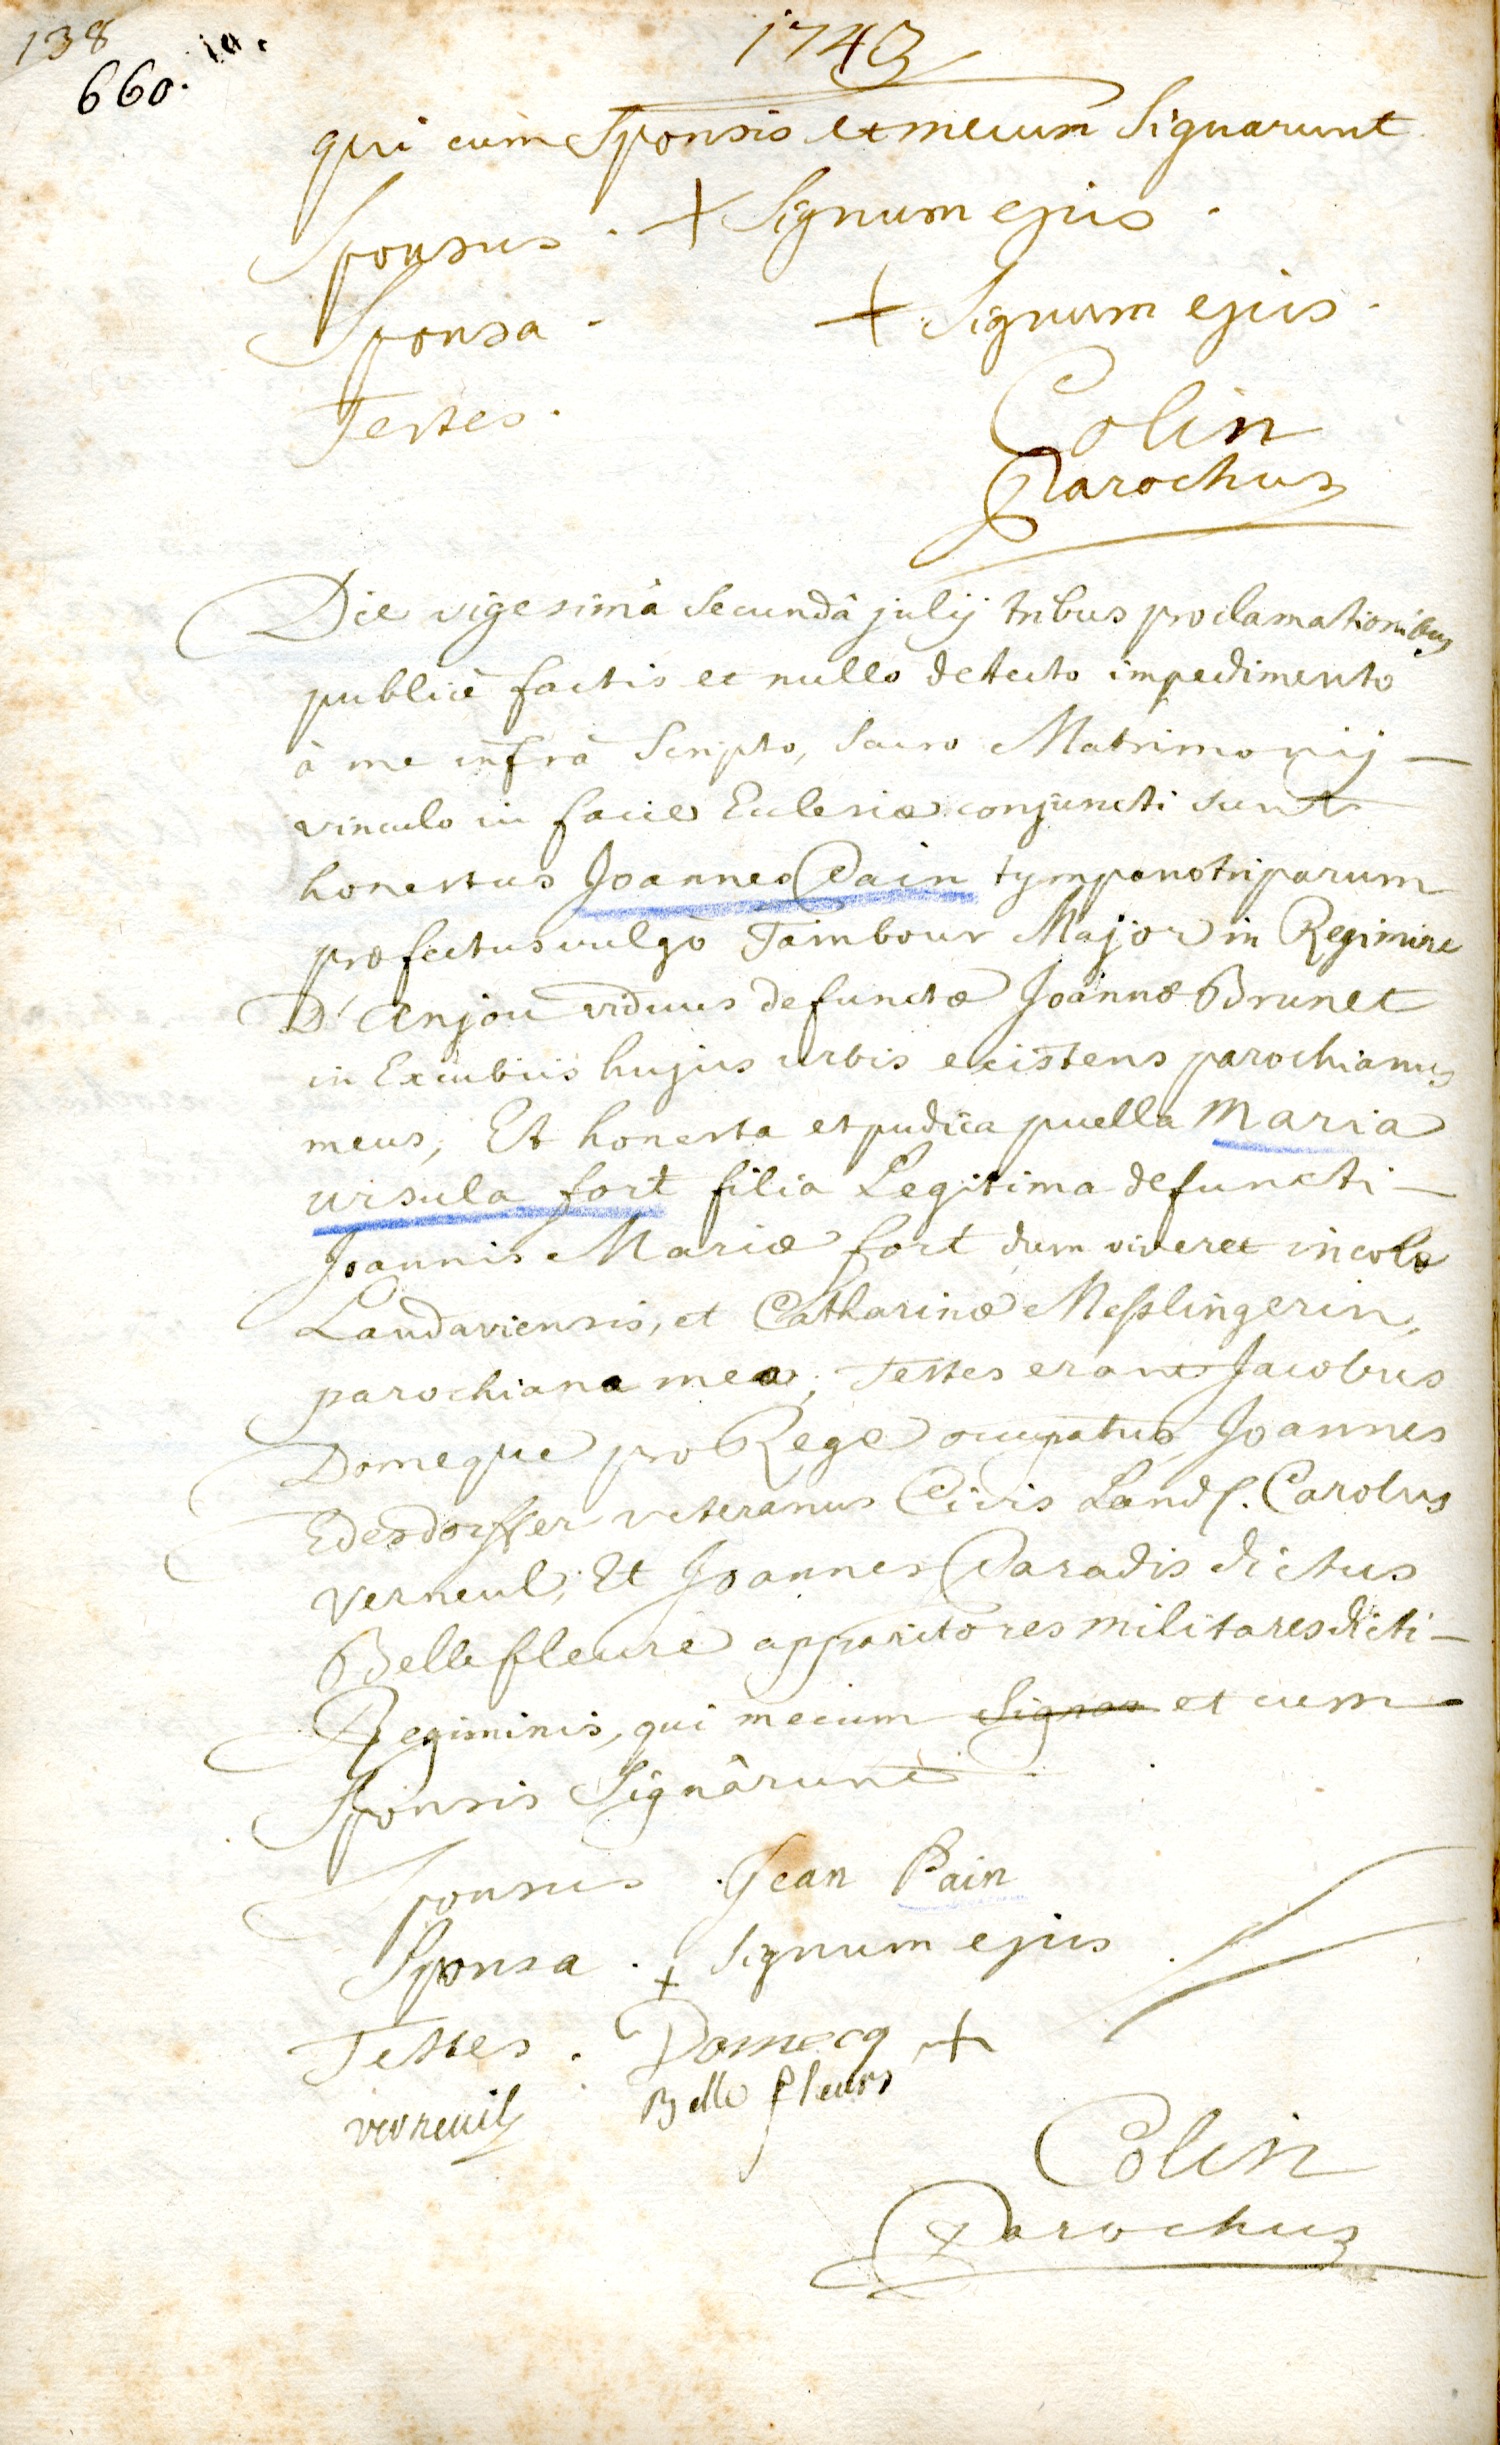 138
660. 10.
1743
qui cum Sponsis et mecum Signarunt
Sponsus . + Signum ejus .
Sponsa . + Signum ejus .
Testes .
Colin
Parochus
Die vigesimâ secundâ julij tribus proclamationibus
publicè factis et nullo detecto impedimento
à me infrà scripto, sacro Matrimonij —
vinculo in facie Ecclesiæ conjuncti sunt
honestus Joannes Pain tympanotriparum
præfectus vulgò Tambour Major in Regimine
D'Anjou viduus defunctæ Joannæ Brunet
in Excubiis hujus urbis existens parochianus
meus, Et honesta et pudica puella Maria
ursula fort filia Legitima defuncti —
Joannis Mariæ fort dum viveret incolæ
Landaviensis, et Catharinæ Messlingerin,
parochiana mea; Testes erant Jacobus
Domeque pro Rege occupatus, Joannes
Edesdorffer veteranus Civis Lands. Carolus
Verneul, Et Joannes Paradis dictus
Bellefleure apparitores militares dicti —
Regiminis, qui mecum Signar et cum
Sponsis Signârunt
Sponsus Jean Pain
Sponsa . + Signum ejus
Testes . Domecq +
verneuil Belle fleurs
Colin
Parochus